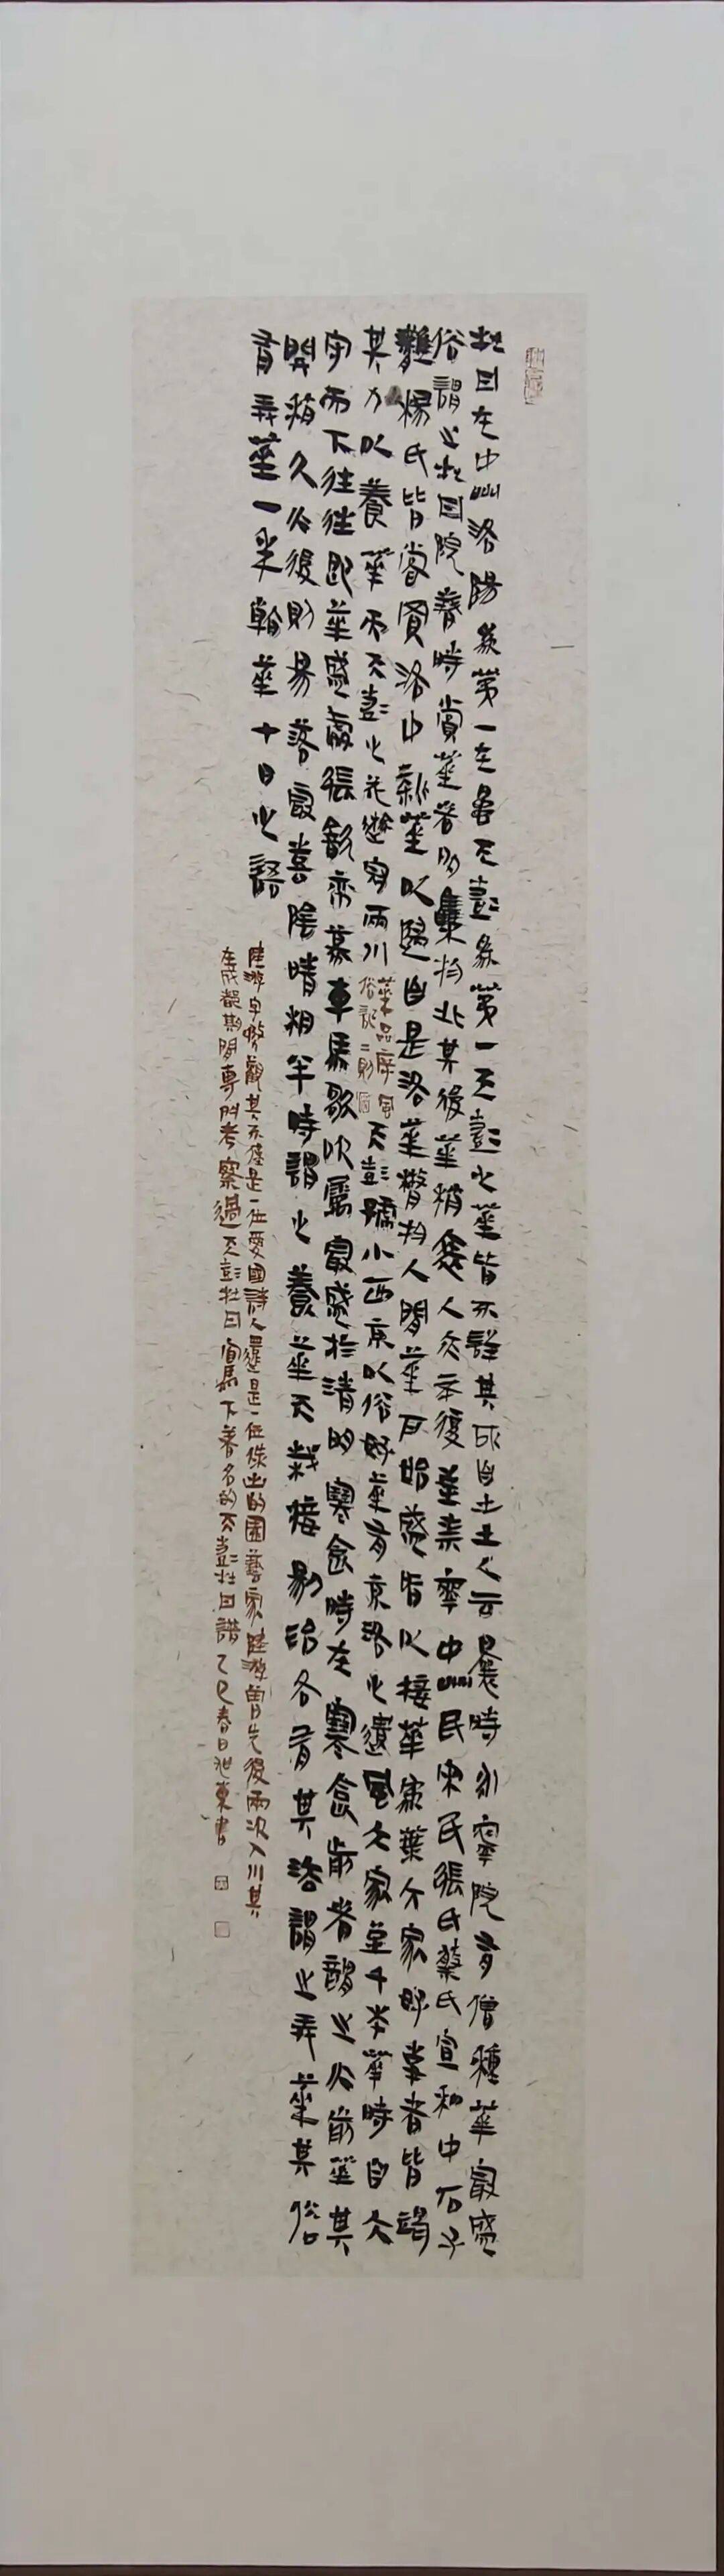 牡丹在中州洛陽爲第一在蜀天彭爲第一天彭之華皆不詳其所自土土人云曩時永寧院有僧種華最盛
俗謂之牡丹院春時賞華者多集於此其後華稍衰人亦不復至崇寧中州民宋民張氏蔡氏宣和中石子
灘楊氏皆嘗買洛中新華以歸自是洛華散於人間華戶始盛皆以接華爲業大家好事者皆竭
其力以養華而天彭之花遂冠兩川 華品序風俗記二則 天彭號小西京以俗好華有京洛之遺風大家至千本華時自太
守而下往往即華盛處張飲帟幕車馬歌吹屬最盛於清明寒食時在寒食前者謂之火前華其
開稍久火後則易落最喜陰晴相半時謂之養華天栽接剔治各有其法謂之弄華其俗
有弄華一年看華十日之語
陸游字務觀其不僅是一位愛國詩人還是一位傑出的園藝家陸游曾先後兩次入川其
在成都期間專門考察過天彭牡丹寫下著名的天彭牡丹譜乙巳春日池東書